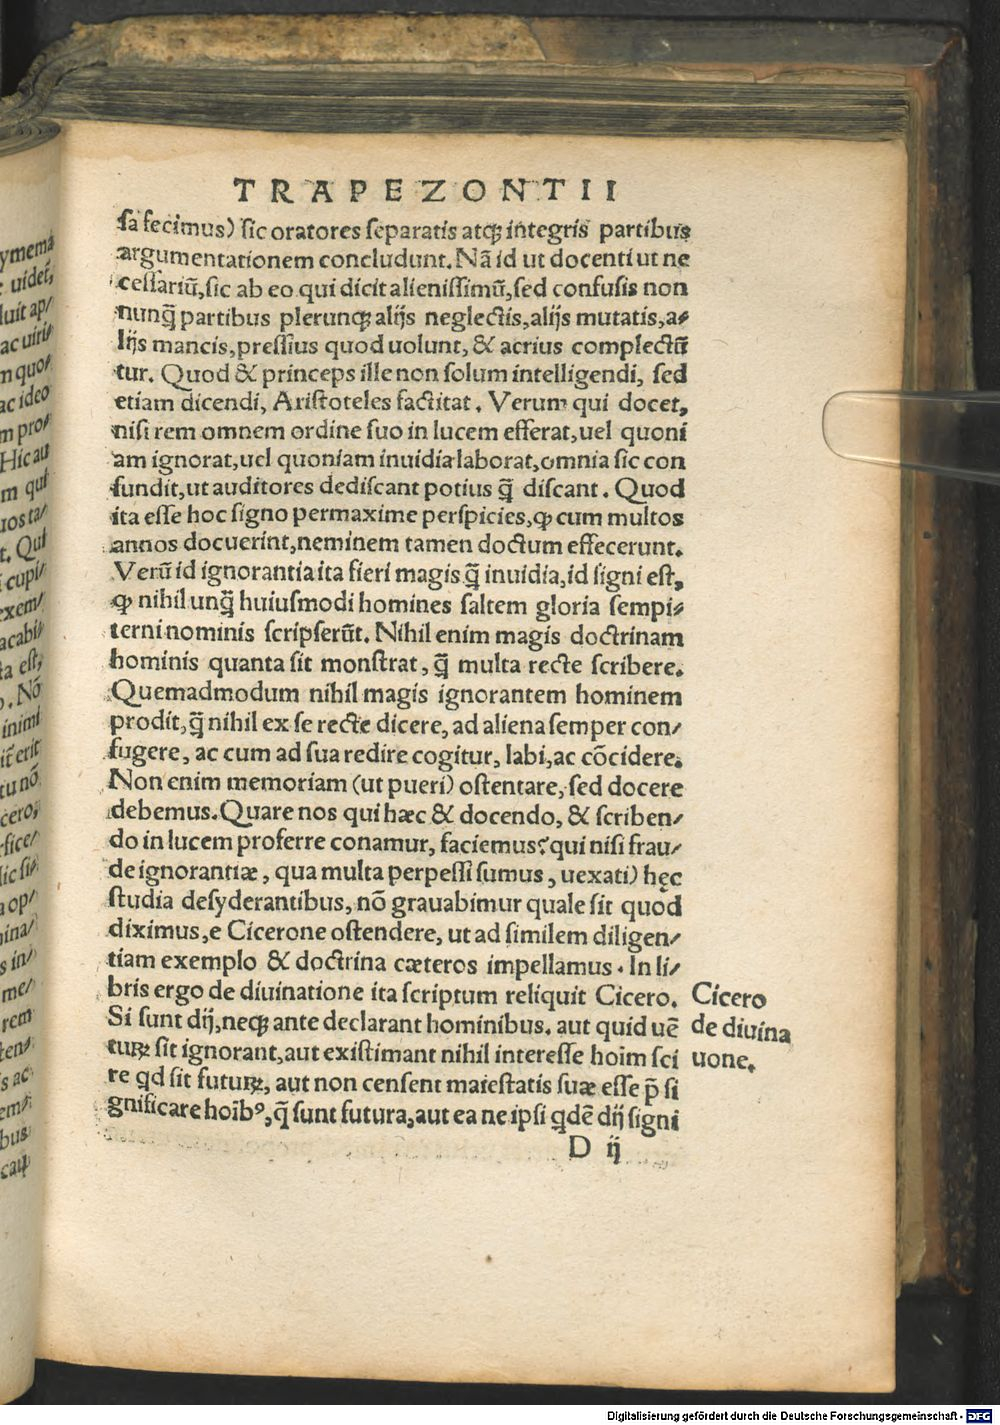 TRAPEZONTII
ſa fecimus) ſic oratores ſeparatis atqꝫ integris partibus
argumentationem concludunt. Nā id ut docenti ut ne
ceſſariū, ſic ab eo qui dicit alieniſſimū, ſed confuſis non
nunꝗ̃ partibus plerunqꝫ alijs neglectis, alijs mutatis, a⸗
lijs mancis, preſſius quod uolunt, & acrius complectū
tur. Quod & princeps ille non ſolum intelligendi, ſed
etiam dicendi, Ariſtoteles factitat. Verum qui docet,
niſi rem omnem ordine ſuo in lucem efferat, uel quoni
am ignorat, uel quoniam inuidia laborat, omnia ſic con
fundit, ut auditores dediſcant potius ꝗ̃ diſcant. Quod
ita eſſe hoc ſigno permaxime perſpicies, ꝙ cum multos
annos docuerint, neminem tamen doctum effecerunt.
Verū id ignorantia ita fieri magis ꝗ̃ inuidia, id ſigni eſt,
ꝙ nihil unꝗ̃ huiuſmodi homines ſaltem gloria ſempi⸗
terni nominis ſcripſerūt. Nihil enim magis doctrinam
hominis quanta ſit monſtrat, ꝗ̃ multa recte ſcribere.
Quemadmodum nihil magis ignorantem hominem
prodit, ꝗ̃ nihil ex ſe recte dicere, ad aliena ſemper con⸗
fugere, ac cum ad ſua redire cogitur, labi, ac cōcidere.
Non enim memoriam (ut pueri) oſtentare, ſed docere
debemus. Quare nos qui hæc & docendo, & ſcriben⸗
do in lucem proferre conamur, faciemus? qui niſi frau⸗
de ignorantiæ, qua multa perpeſſi ſumus, uexati) hęc
ſtudia deſyderantibus, nō grauabimur quale ſit quod
diximus, e Cicerone oſtendere, ut ad ſimilem diligen⸗
tiam exemplo & doctrina cæteros impellamus. In li⸗
bris ergo de diuinatione ita ſcriptum reliquit Cicero.
Si ſunt dij, neqꝫ ante declarant hominibus. aut quid uē
tuꝝ ſit ignorant, aut exiſtimant nihil intereſſe hoīm ſci
re qd ſit futuꝝ, aut non cenſent maieſtatis ſuæ eſſe p̄ ſi
gnificare hoībꝰ, q̄ ſunt futura, aut ea ne ipſi qdē dij ſigni
Cicero
de diuina
uone.
D ij
Digitalisierung gefördert durch die Deutsche Forschungsgemeinschaft - DFG